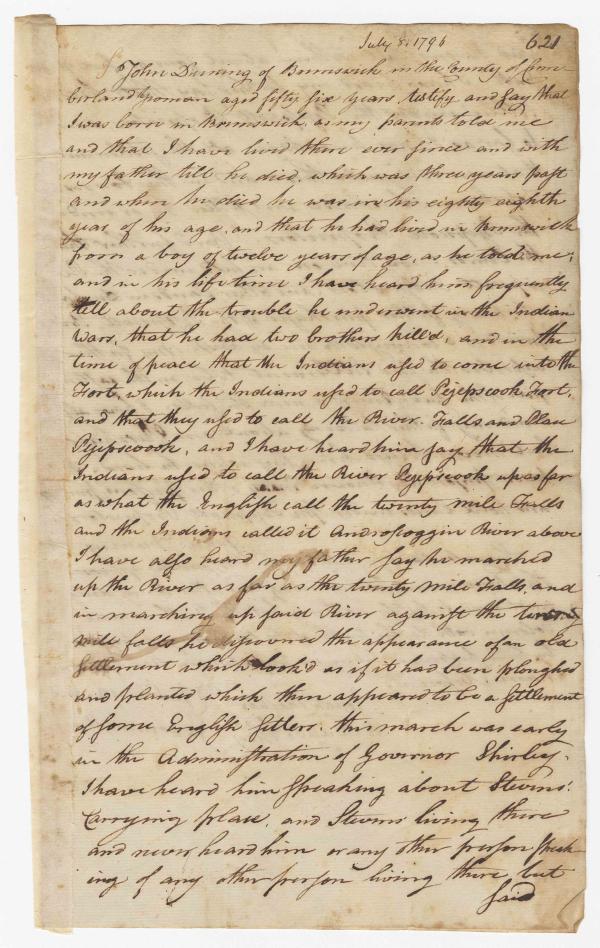 July 8. 1796
621
I John Duning of Brunswick in the County of Cum-
berland yeoman aged fifty six years, testify and say that
I was born in Brunswick, as my parents told me
and that I have lived there ever since and with
my father till he died, which was three years past
and when he died he was in his eighty eighth
year of his age, and that he had lived in Brunswick
from a boy of twelve years of age, as he told me;
and in his life time I have heard him frequently
tell about the trouble he underwent in the Indian
Wars, that he had two brothers kill'd, and in the
time of peace that the Indians used to come into the
Fort, which the Indians used to call Pejepscook Fort,
and that they used to call the River Falls and Place
Pejepscook, and I have heard him say that the
Indians used to call the River Pejepscook up as far
as what the English call the twenty mile Falls
and the Indians called it Androscoggin River above
I have also heard my father say he marched
up the River as far as the twenty mile Falls, and
in marching up said River against the twenty
mile falls he discovered the appearance of an old
settlement which look'd as if it had been ploughed
and planted which then appeared to be a settlement
of some English setlers. this march was early
in the Administration of Governor Shirley.
I have heard him speaking about Stevens'
Carrying place, and Stevens living there
and never heard him or any other person speak-
ing of any other person living there, but
said